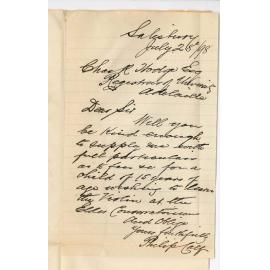 Salisbury
July 28th/98
Chas R Hodge Esq
Registrar University
Adelaide
Dear Sir
Will you
be kind enough
to supply me with
full particulars
as to fees for a
child of 15 years of
age wishing to learn
the Violin at the
Elder Conservatorium
And Oblige
Yours faithfully
Philip